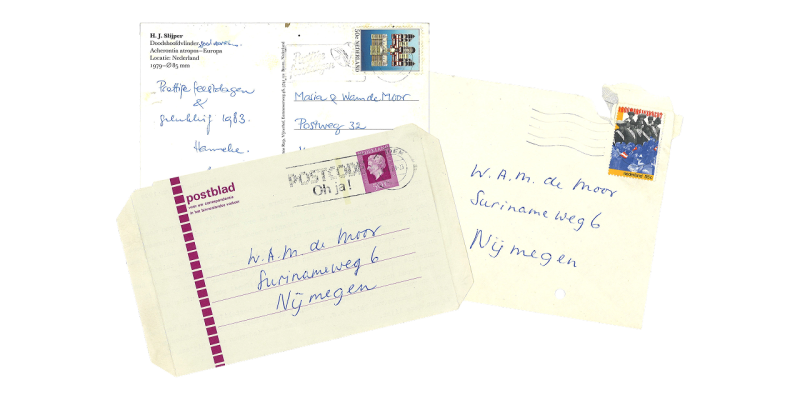 H. J. Slijper
Doodshoofdvlinder
Acherontia atropos—Europa
Locatie: Nederland
1979—Ø 85 mm
Prettige feestdagen
&
gelukkig 1983.
Hanneke
NEDERLAND
Maria & Wam de Moor
Postweg 32
postblad
voor uw correspondentie
in het binnenlandse verkeer
POSTCODE
Oh ja!
W. A. M. de Moor
Surinameweg 6
Nijmegen
W. A. M. de Moor
Surinameweg 6
Nijmegen